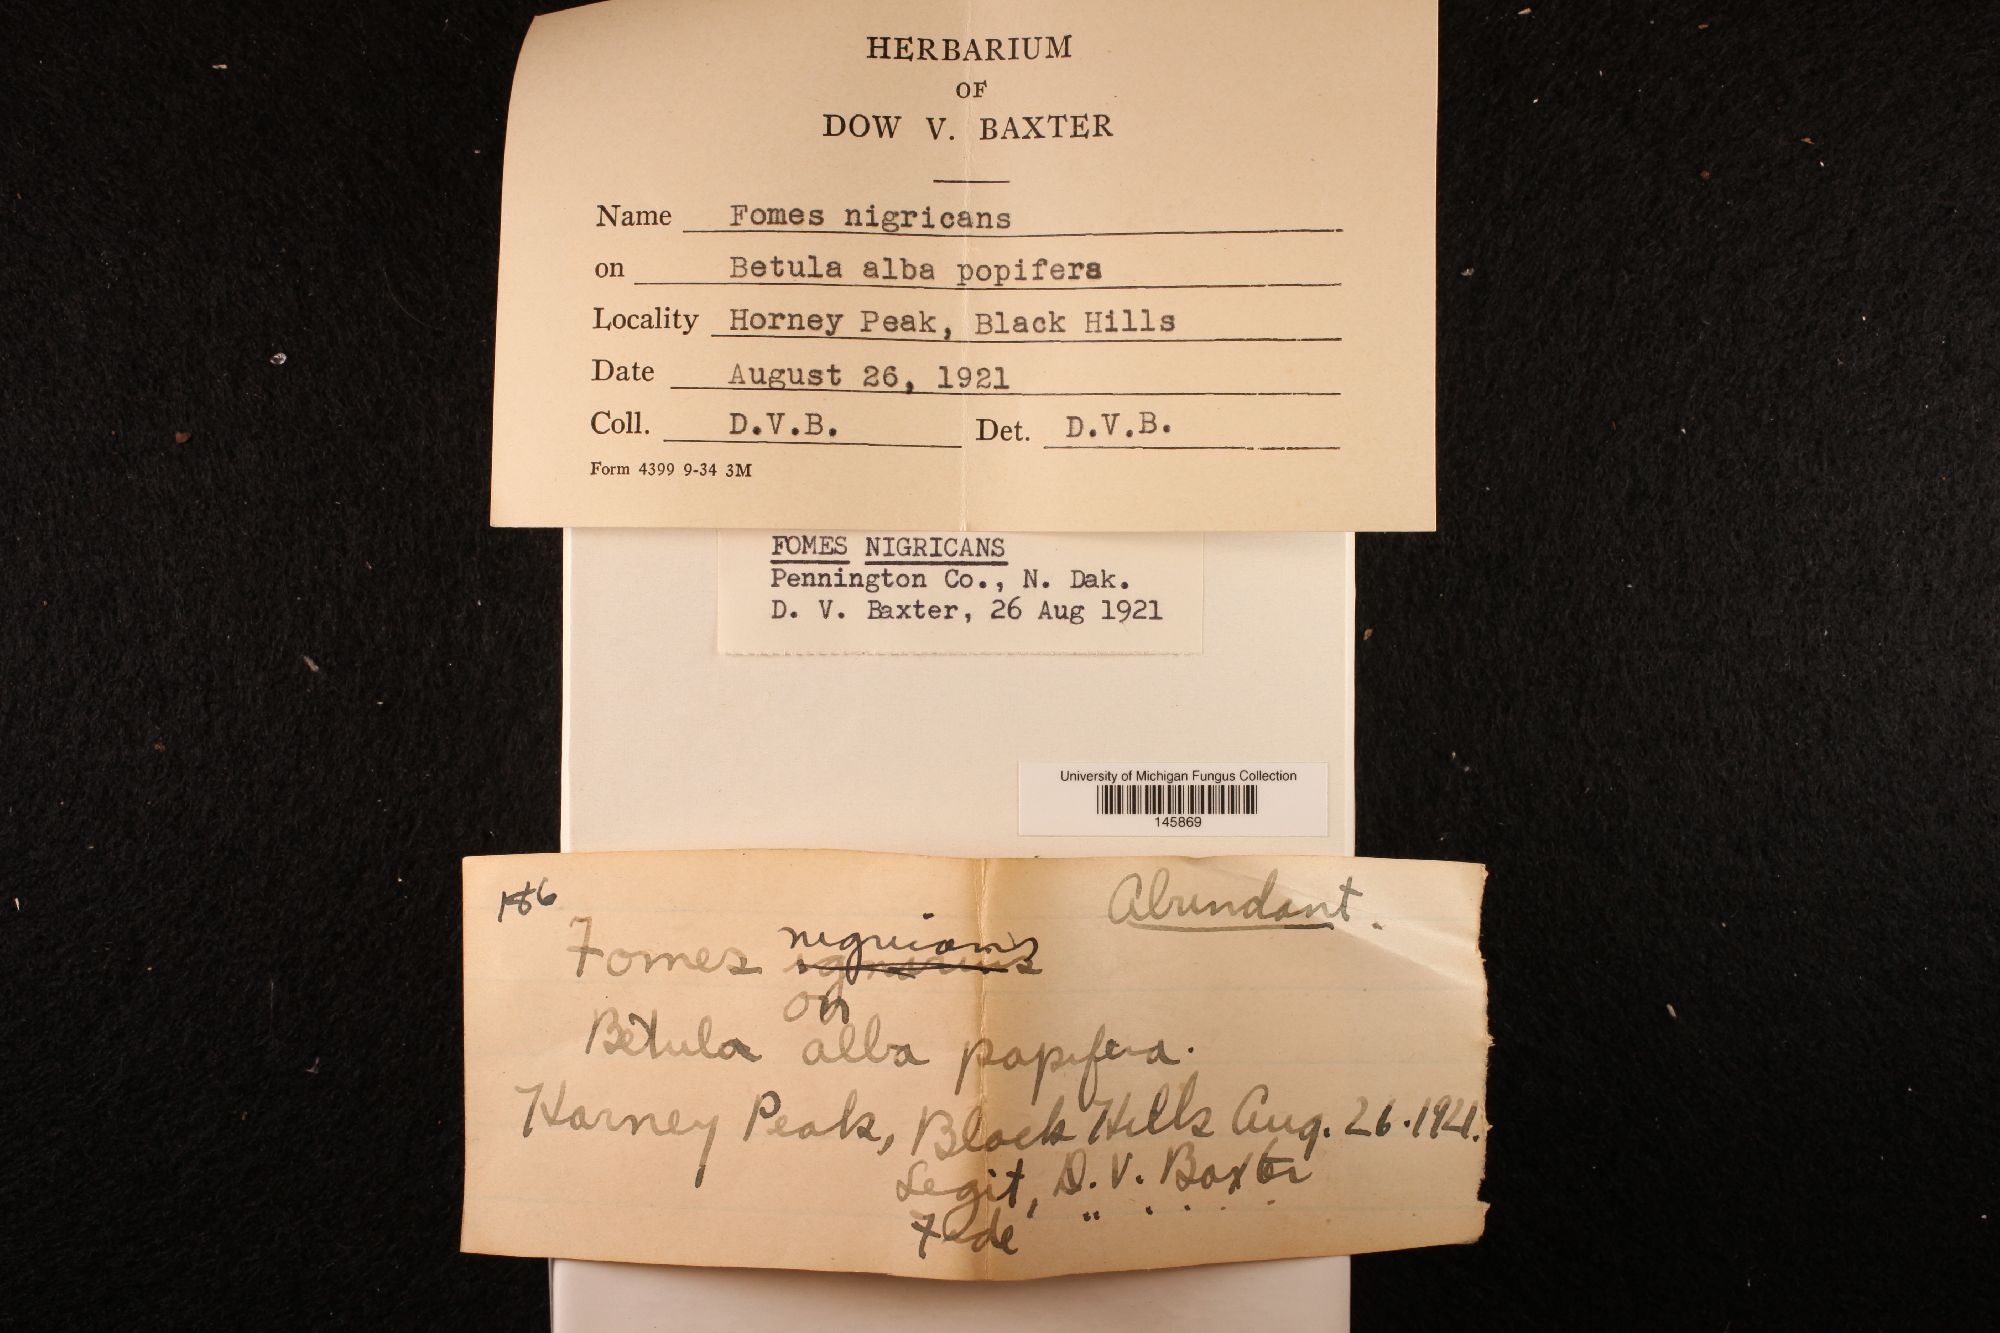 HERBARIUM
OF
DOW V. BAXTER
Name Fomes nigricans
on Betula alba popifera
Locality Horney Peak, Black Hills
Date August 26, 1921
Coll. D.V.B. Det. D.V.B.
Form 4399 9-34 3M
FOMES NIGRICANS
Pennington Co., N. Dak.
D. V. Baxter, 26 Aug 1921
University of Michigan Fungus Collection
145869
Abundant.
Fomes nigricans
on
Betula alba papifera.
Harney Peak, Black Hills Aug. 26.1921.
Legit, D. V. Baxter
Fide " " " " "